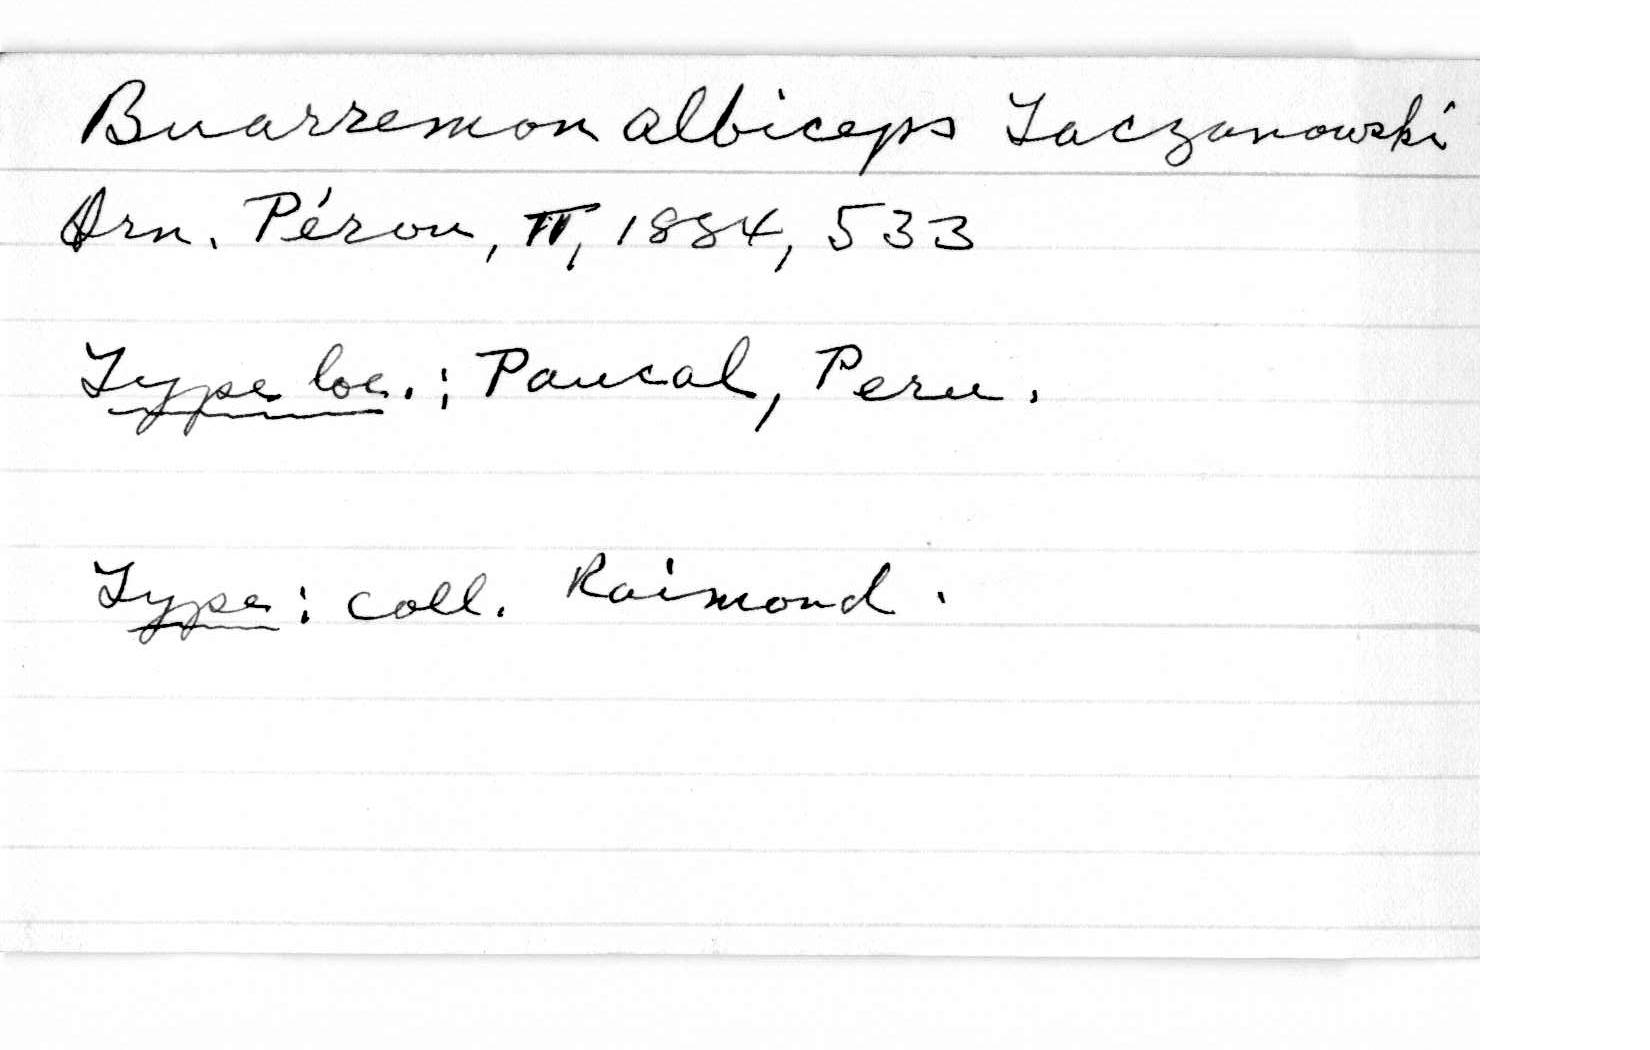 Buarremon albiceps Taczanowski
Orn. Pérou, II, 1884, 533
Type loc.: Paucal, Peru.
Type: coll. Raimond.